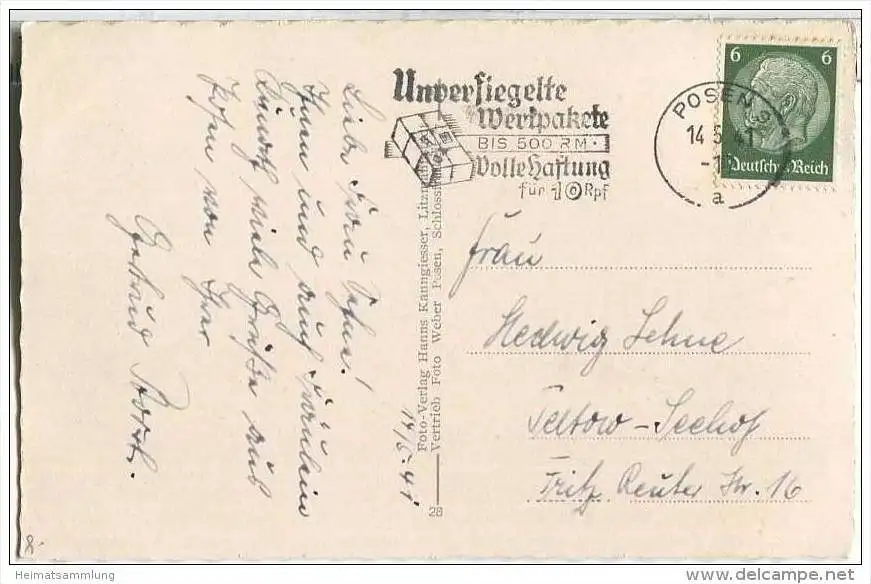 Unversiegelte
Wertpakete
BIS 500 RM.
Volle Haftung
für 10 Rpf
POSEN
14.5.41
a
6 6
Deutsches Reich
Frau
Hedwig Lehne
Teltow-Seehof
Fritz Reuter Str. 16
Liebe Frau Lehne!
Ihnen und auch Fräulein
viele Grüße aus
Posen von Ihrer
Gertrud
14/5.41
Foto-Verlag Hanns Kanngiesser, Litzm
Vertrieb Foto Weber Posen, Schloss
28
© Heimatsammlung
www.delcampe.net